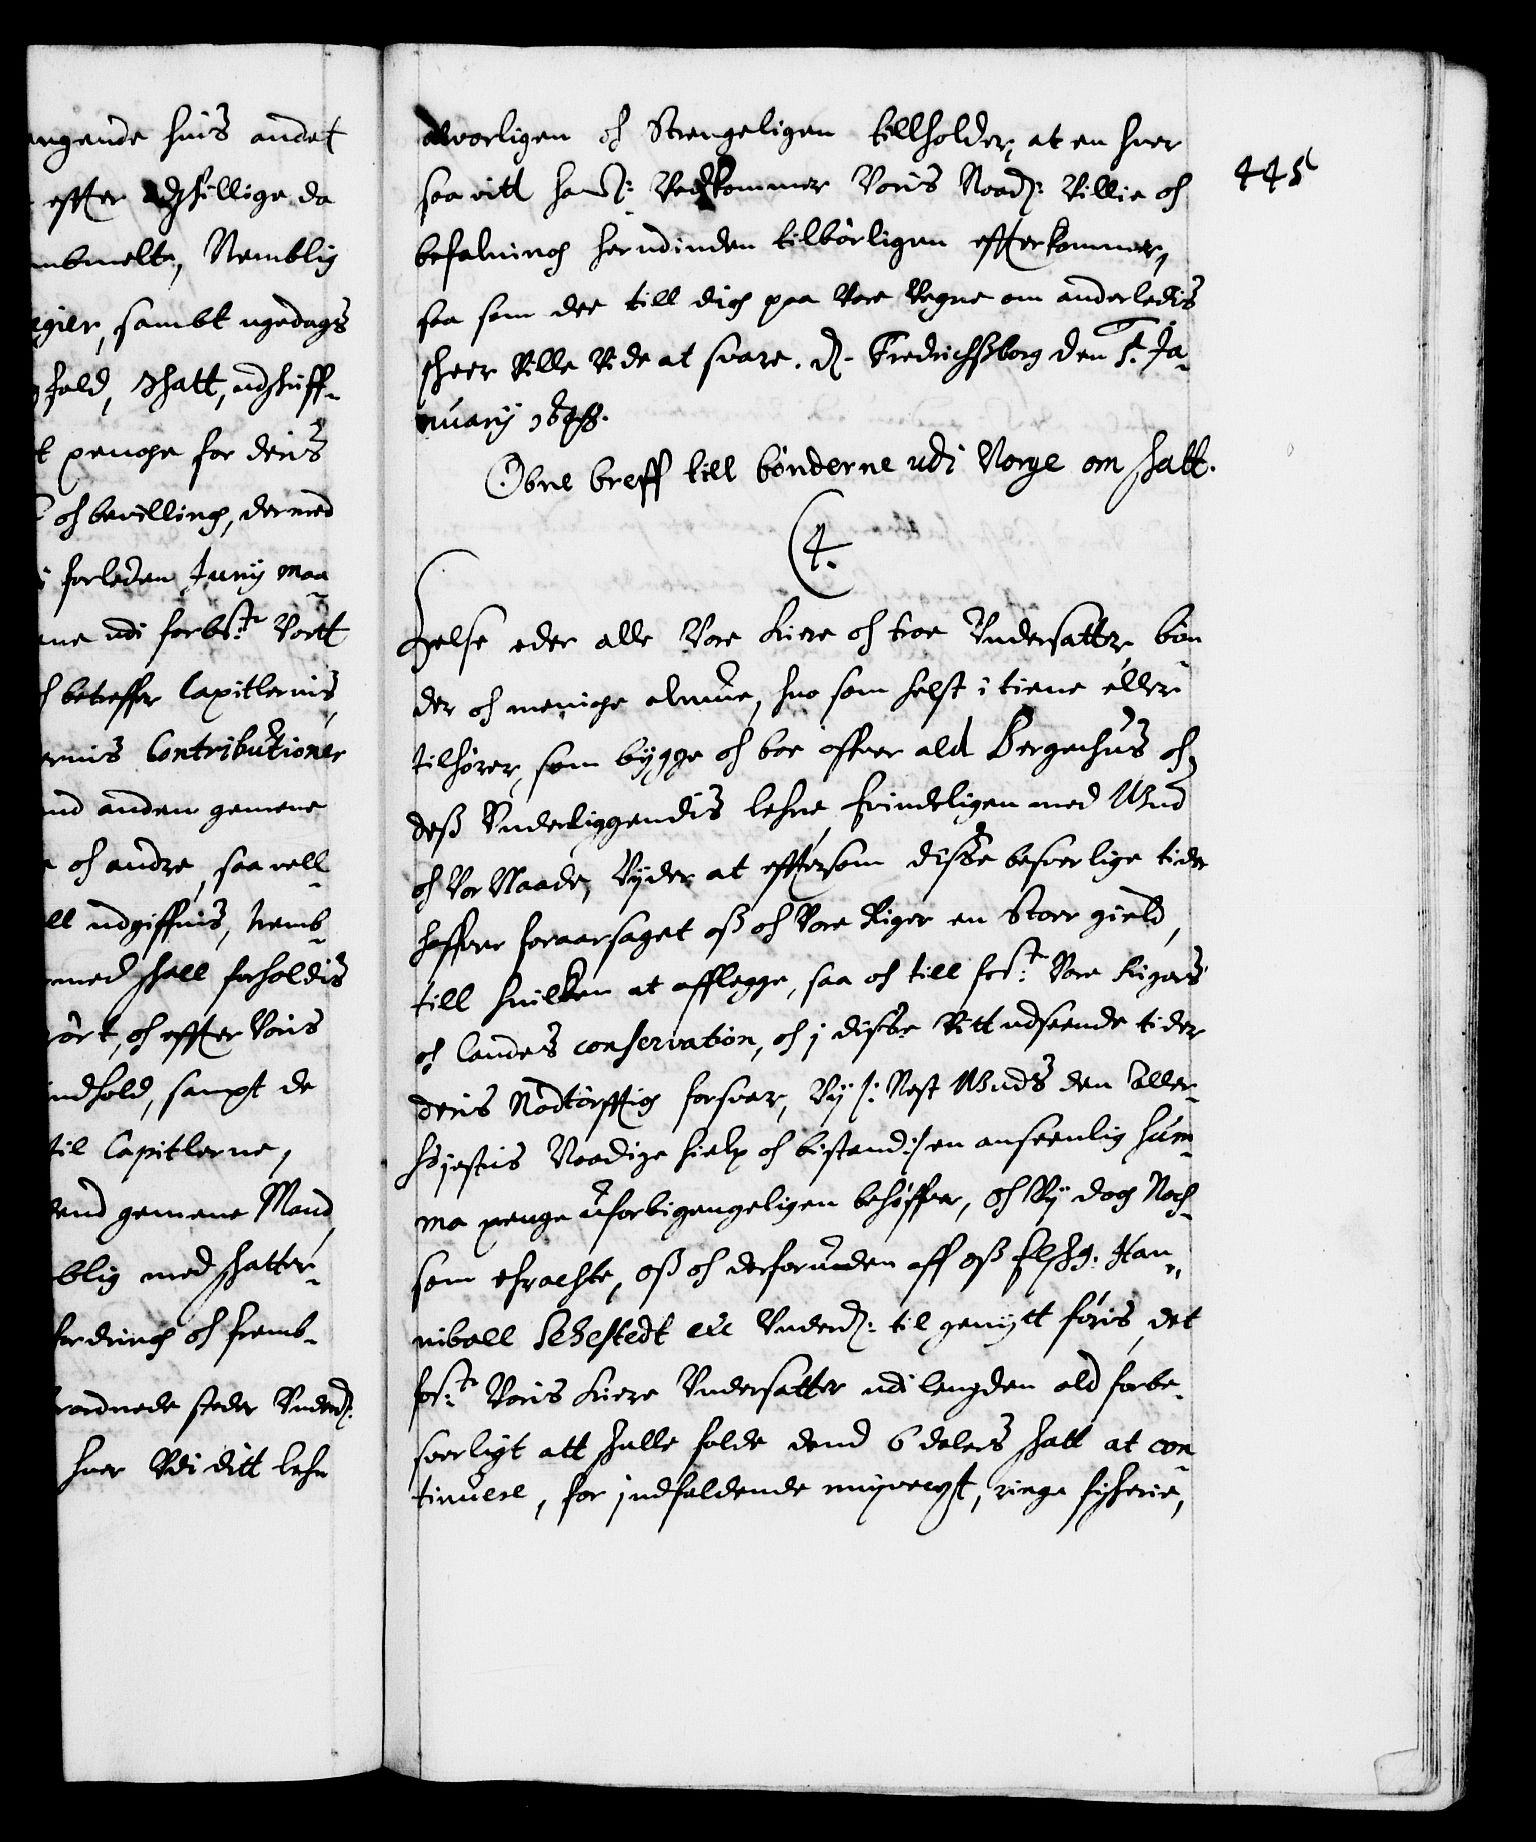 ngende huis andet
effter adskillige da
mbmelte, Nemblig
egier, sambt ugedags
fald, skatt, udskuff-
t penge for deris
oh bevilling, dermed
forleden Junij maa
ne udi forbste: Vortt
betreffer Capitlernis,
ernis Contributioner
nd anden gemene
oh andre, saa vell
ll udgiffuis, Nemb-
med skall forholdis
ørt, oh effter Voris
ndhold, sampt de
til Capitlerne,
end gemene Mand,
blig med skatter-
fordring oh fremb-
ordnede steder Underd:
huer Udi ditt lehn
445
alvorligen oh Strengeligen tillholder, at en huer
saa vitt Vedkommer Voris Naad: Villie oh
befalning herudinden tilbørligen effterkommer,
saa som dee till dig paa Vore Vegne om anderledis
skeer Ville Vide at svare. d. Fredrichsborg den 5. Ja-
nuary 1648.
Obne breff till bønderne udi Norge om skatt.
C4.
Helse eder alle Vore kiere oh troe Undersatter, bøn-
der oh menige almue, huo som helst i tiene eller
tilhører, som bygge oh boe offuer ald Bergenhus oh
deß Underliggendis lehne, kiendeligen med Gud
oh Vor Naade, Vider at efftersom diße besverlige tider
haffuer foraarsaget oß oh Vore Riger en Stoer gield,
till huilken at afflegge, saa oh till fost: Vore Rigers
oh landes conservation, oh i diße Vitt udseende tider
deris Nødtørfftig forsvar, Vy /: Nest Guds den aller-
højestis Naadige hielp oh bistand :/ en anseenlig sum-
ma penge uforbigengeligen behøffuer, Oh Vy dog Noch-
som eracte, oß oh derforuden aff oß Elsk: Han-
niball Sehestedt etc Underd: til gemytt føris, det
foste: Voris kiere Undersatter udi lengden ald forbe-
sverligt att skulle falde dend 6 dalers skatt at con-
tinuere, for indfaldende misvext, ringe fiskerie,